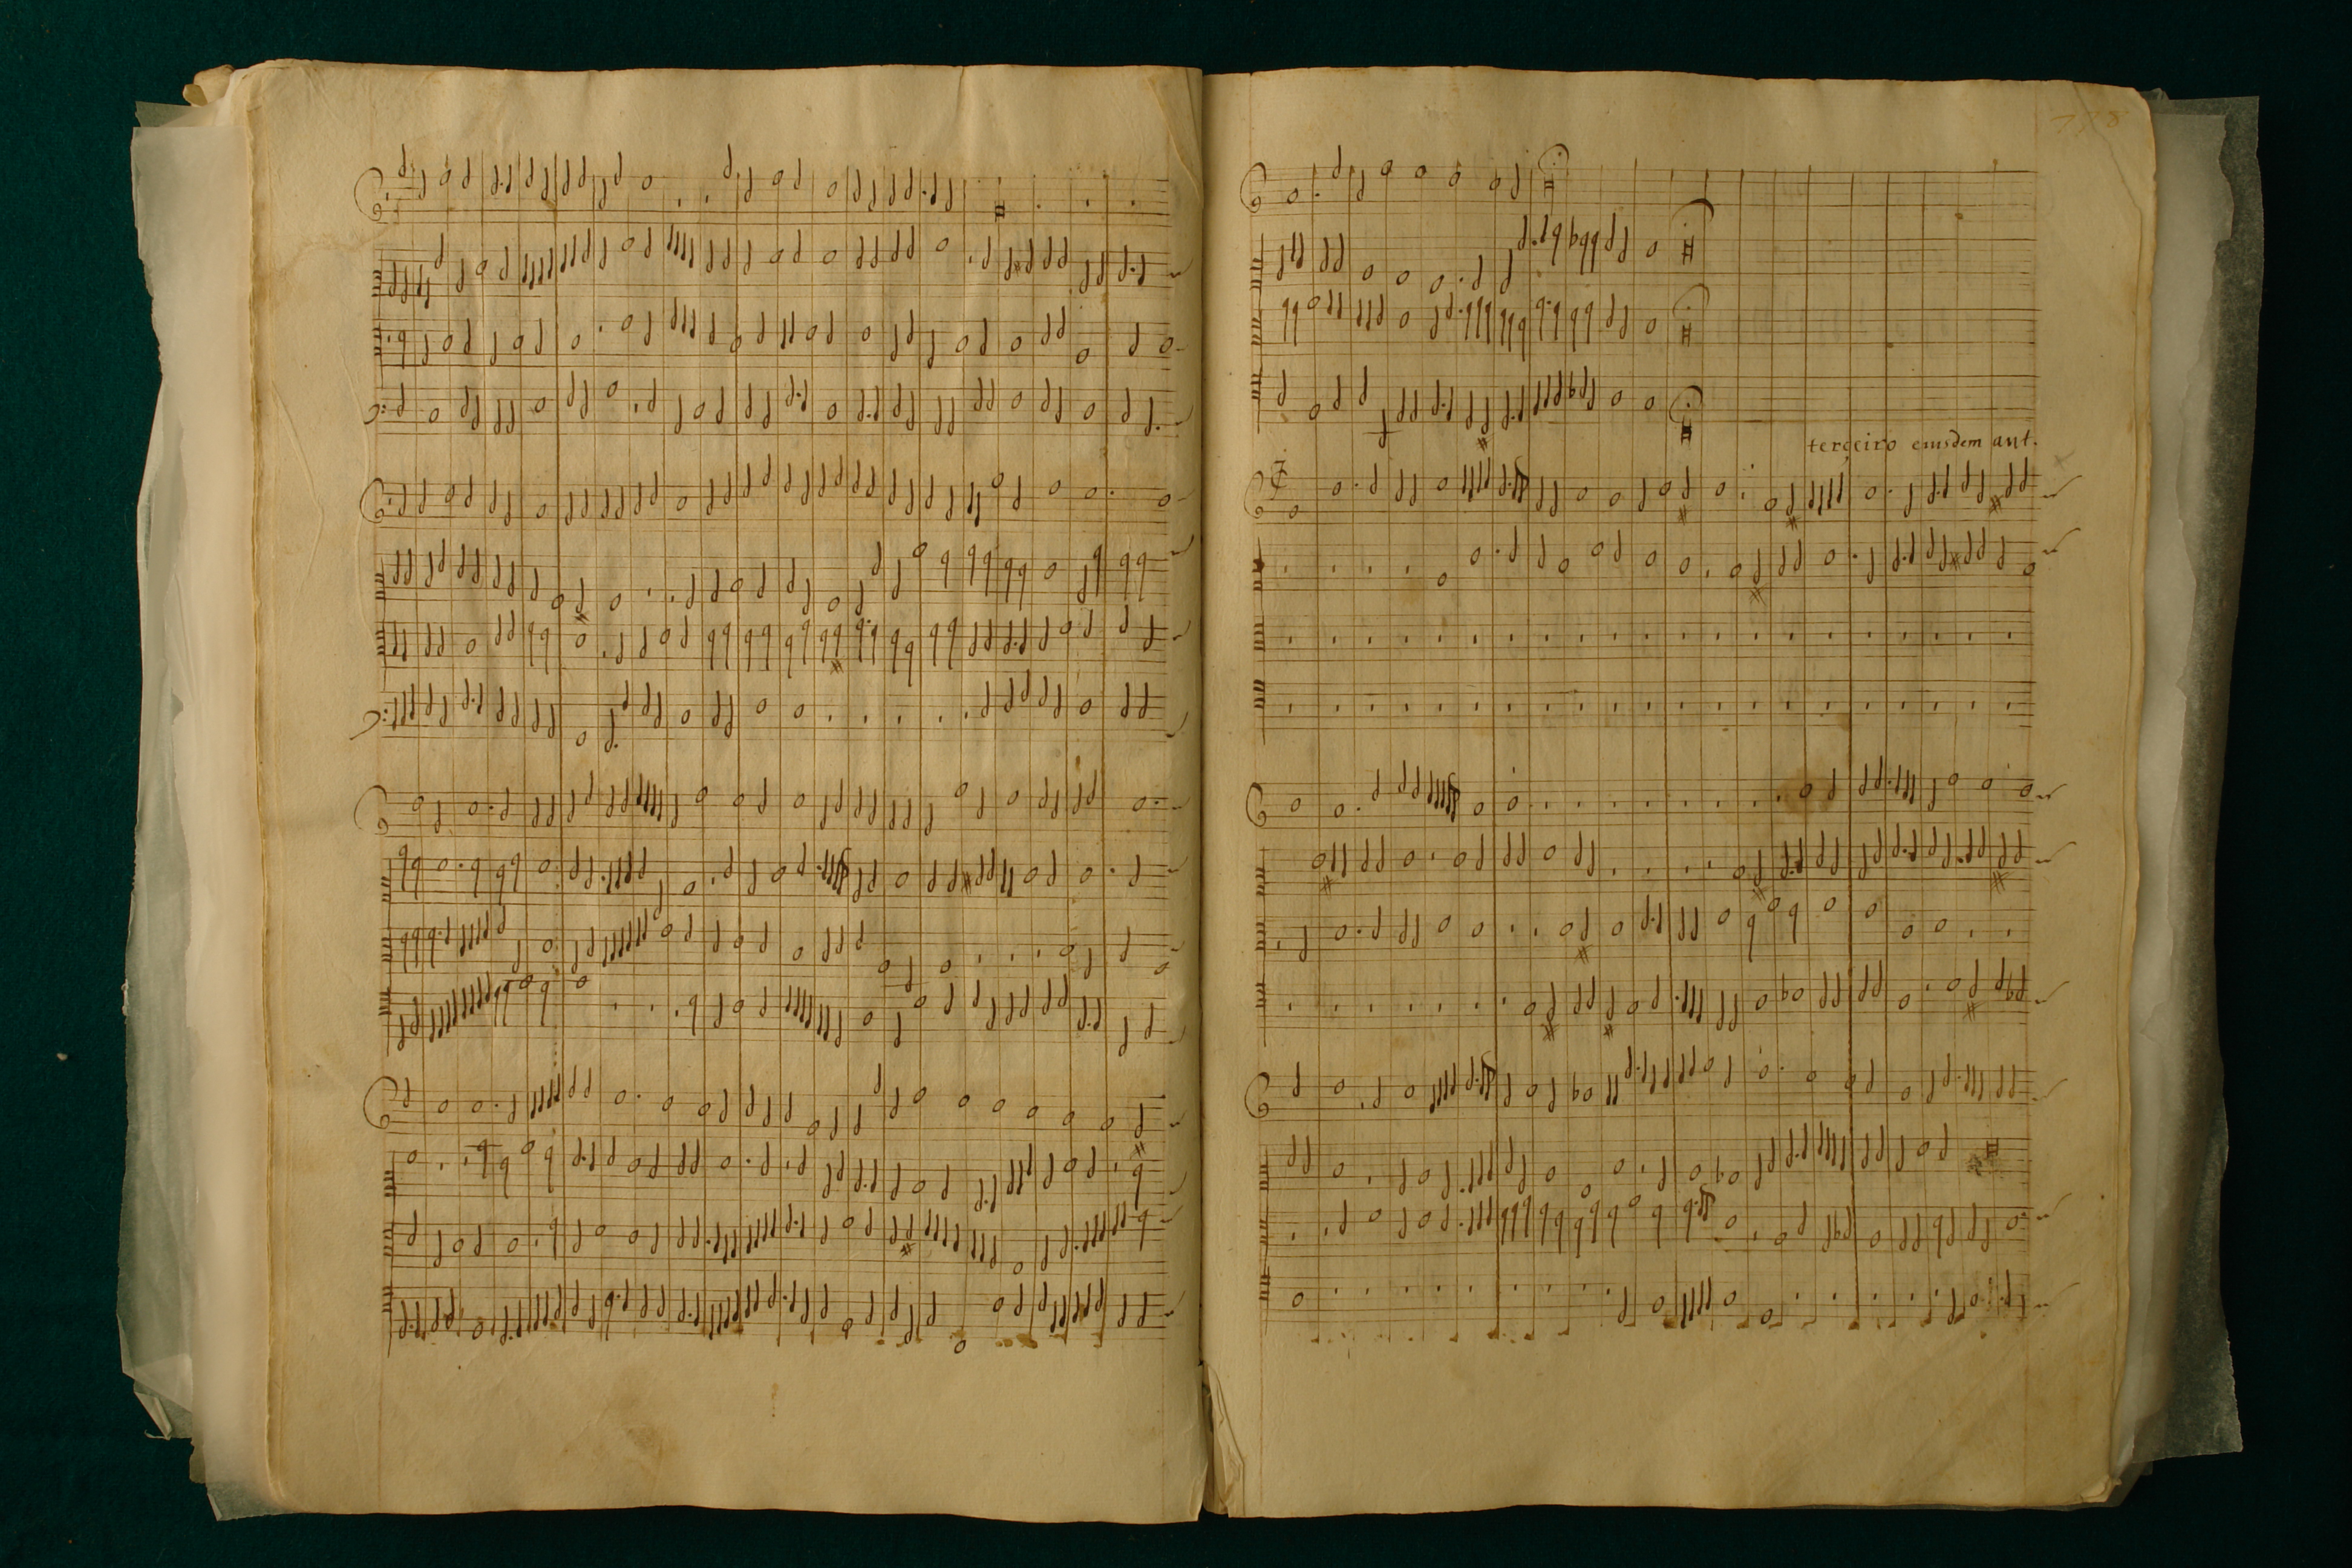 terçeiro eiusdem aut.